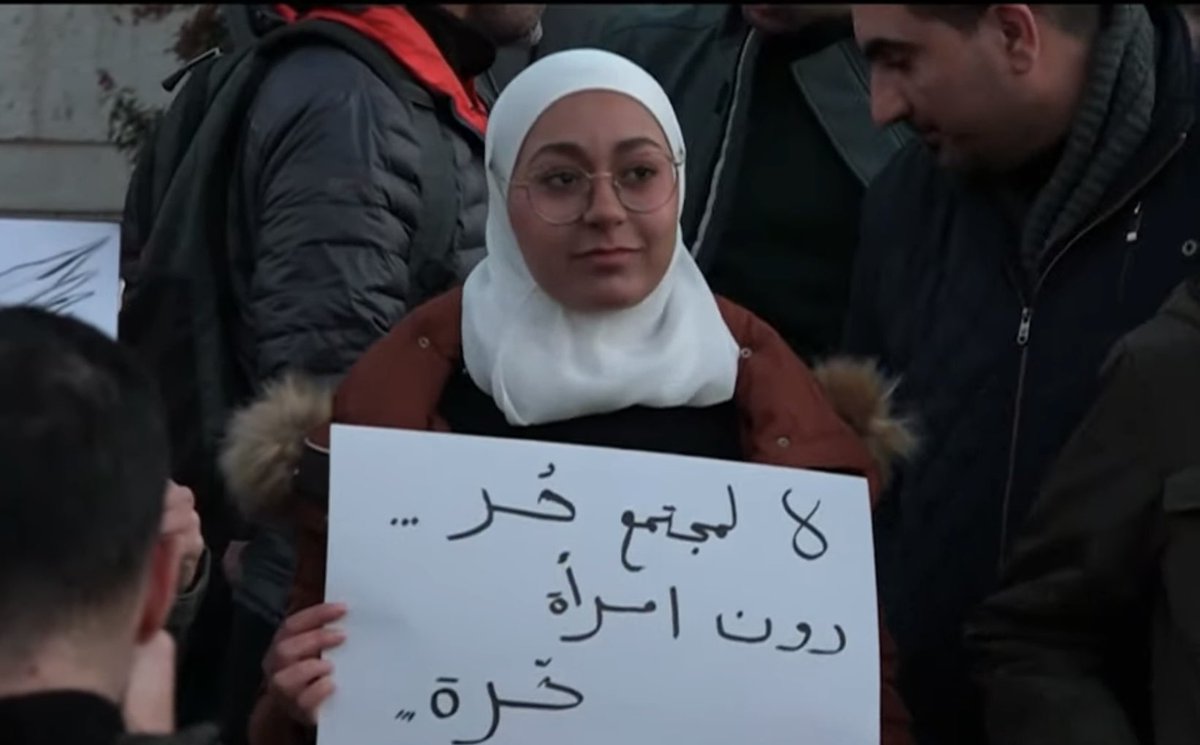 لا لمجتمع حُر ...
دون امرأة
حّرة ,,,